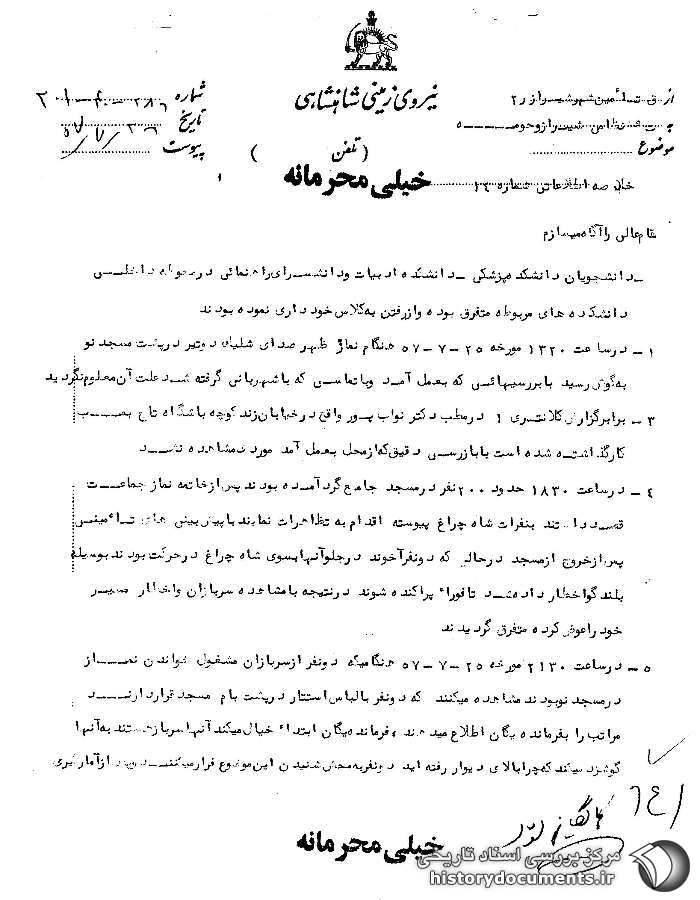 نیروی زمینی شاهنشاهی
از ق تأمین شهر شیراز ر۲
به ف نظامی شیراز و حومـــــه
موضوع
شماره ۲۰۱-۴۰-۲۸۶
تاریخ ۵۷/۷/۲۶
پیوست
( تلفن )
خیلی محرمانه
خلاصه اطلاعاتی شماره ۱۴
مقام عالی را آگاه میسازم
ـ دانشجویان دانشکده پزشکی ـ دانشکده ادبیات و دانشسرای راهنمائی در محوطه داخلی
دانشکده های مربوطه متفرق بوده و از رفتن به کلاس خود داری نموده بودند
۱ ـ در ساعت ۱۳۲۰ مورخه ۲۵-۷-۵۷ هنگام نماز ظهر صدای شلیک دو تیر در پشت مسجد نو
به گوش رسید با بررسیهائی که بعمل آمد و با تماسی که با شهربانی گرفته شد علت آن معلوم نگردید
۳ ـ برابر گزارش کلانتری ۱ در مطب دکتر نواب پور واقع در خیابان زند کوچه باشگاه تاج بمب
کار گذاشته شده است با بازرسی دقیق که از محل بعمل آمد موردی مشاهده نشد
۴ ـ در ساعت ۱۸۳۰ حدود ۲۰۰ نفر در مسجد جامع گرد آمده بودند پس از خاتمه نماز جماعت
قصد داشتند بنفرات شاه چراغ پیوسته اقدام به تظاهرات نمایند با پیش بینی های تأمینی
پس از خروج از مسجد در حالی که دو نفر آخوند در جلو آنها بسوی شاه چراغ در حرکت بودند بوسیله
بلند گو اخطار داده شد تا فوراً پراکنده شوند در نتیجه با مشاهده سربازان و اخطار مسیر
خود را عوض کرده متفرق گردیدند
۵ ـ در ساعت ۲۱۳۰ مورخه ۲۵-۷-۵۷ هنگامیکه دو نفر از سربازان مشغول خواندن نمـــاز
در مسجد نو بودند مشاهده میکنند که دو نفر با لباس استتار در پشت بام مسجد قرار دارنـــد
مراتب را بفرمانده یگان اطلاع میدهند ، فرمانده یگان ابتداء خیال میکند آنها سرباز هستند به آنها
گوشزد میکند که چرا بالای دیوار رفته اید دو نفر به محض شنیدن این موضوع فرار میکننـــد و بعد از آمارگیری
خیلی محرمانه
مرکز بررسی اسناد تاریخی
historydocuments.ir